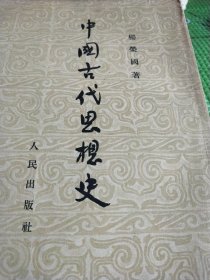 楊榮國著
中國古代思想史
人民出版社